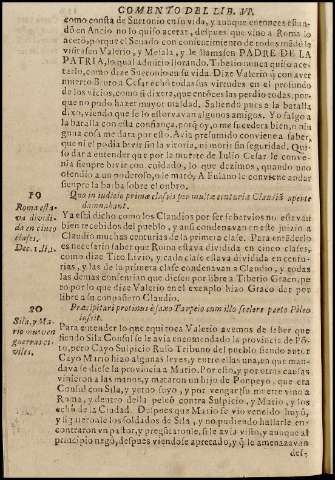 COMENTO DEL LIB. VI.
como consta de Suetonio en su vida, y aunque entonces estan-
do en Ancio no lo quiso acetar, despues que vino a Roma lo
aceto, porque el Senado con consentimiento de todos mãdò le
visitassen Valerio, y Mesala, y le llamassen PADRE DE LA
PATRIA, lo qual admitio llorando. Tiberio nunca quiso ace-
tarlo, como dize Suetonio en su vida. Dize Valerio q̃ con aver
muerto Bruto a Cesar echò todas sus virtudes en el profundo
de los vicios, como si dixera, que entonces las perdio todas, por-
que no pudo hazer mayor maldad. Saliendo pues a la batalla
dixo, viendo que se lo estorvavan algunos amigos. Yo salgo a
la batalla con esta confiança, porq̃ oy, o me sucedera bien, o nin
guna cosa me dara por esto. Avia presumido conviene a saber,
que ni el podia bivir sin la vitoria, ni morir sin seguridad. Qui-
so dar a entender que por la muerte de Iulio Cesar le conve-
nia siempre bivir con cuidado, lo que dezimos, quando uno
ofendio a un poderoso, o le matò, A Fulano le conviene andar
siempre la barba sobre el onbro.
19
Roma esta-
va dividi-
da en cinco
clases.
Dec. 1. li. 1.
Quo in iudicio primæ classis permultæ centuriæ Claudiũ aperte
damnabant.
Ya està dicho como los Claudios por ser sobervios no estavan
bien recebidos del pueblo, y ansi condenavan en este juizio a
Claudio muchas centurias de la primera clase. Para entenderlo
es necessario saber que Roma estava dividida en cinco clases,
como dize Tito Livio, y cada clase estava dividida en centu-
rias, y las de la primera clase condenavan a Claudio, y todas
las demas consentian que diessen por libre a Tiberio Graco, pe
ro por lo que dize Valerio en el exemplo hizo Graco dar por
libre a su compañero Claudio.
20
Sila, y Ma-
rio movieron
guerras ci-
viles.
Præcipitari protinus è saxo Tarpeio cum illo scelere parto Pileo
iussit.
Para entender lo que equivoca Valerio avemos de saber que
siendo Sila Consul se le avia encomendado la provincia de Pō-
to, pero Cayo Sulpicio Rufo Tribuno del pueblo siendo autor
Cayo Mario hizo algunas leyes, y entre ellas una, en que man-
dava se diesse la provincia a Mario. Por esto, y por otras causas
vinieron a las manos, y mataron un hijo de Ponpeyo, que era
Consul con Sila, y yerno suyo, y por vengar su muerte vino a
Roma, y dentro della peleò contra Sulpicio, y Mario, y los
echò de la Ciudad. Despues que Mario se vio vencido huyò,
y siguieronle los soldados de Sila, y no pudiendo hallarle en-
contraron un pastor, y preguntaronle, si le avia visto, y aunque al
principio negò, despues viendose apretado, y q̃ le amenazavan
des-